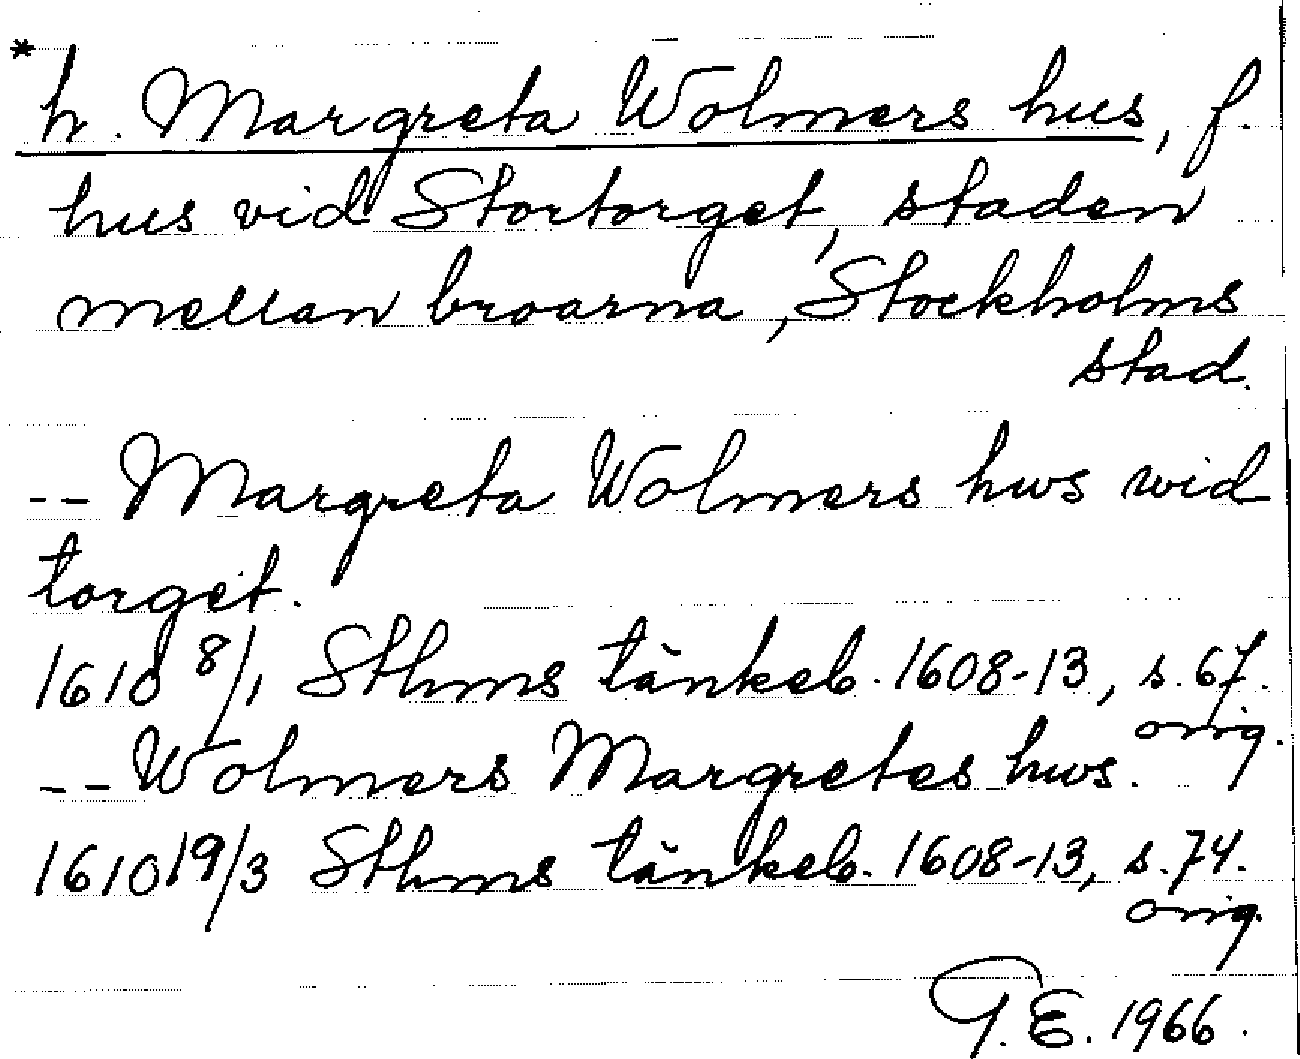 * h. Margreta Wolmers hus, f.
hus vid Stortorget, staden
mellan broarna, Stockholms
stad.
-- Margreta Wolmers hws wid
torget.
1610 8/1 Sthms tänkeb. 1608-13, s. 67.
orig.
-- Wolmers Margretes hws.
1610 19/3 Sthms tänkeb. 1608-13, s. 74.
orig.
G. E. 1966.